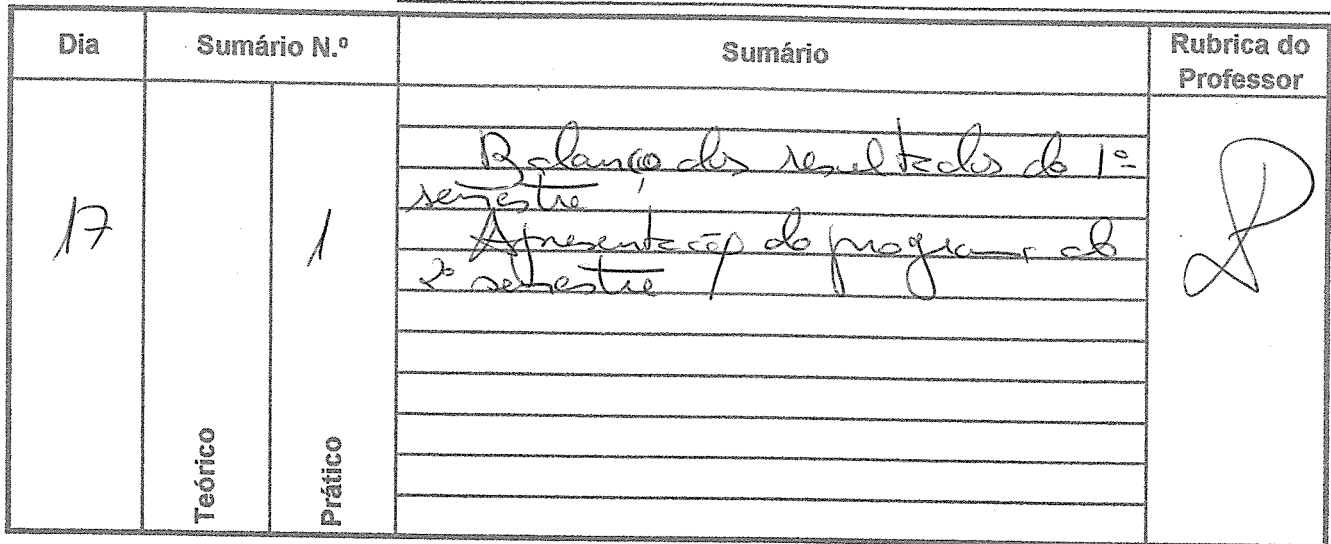 Dia
Sumário N.º
Sumário
Rubrica do
Professor
17
1
Balanço dos resultados do 1º
semestre
Apresentação do programa do
2º semestre
Teórico
Prático